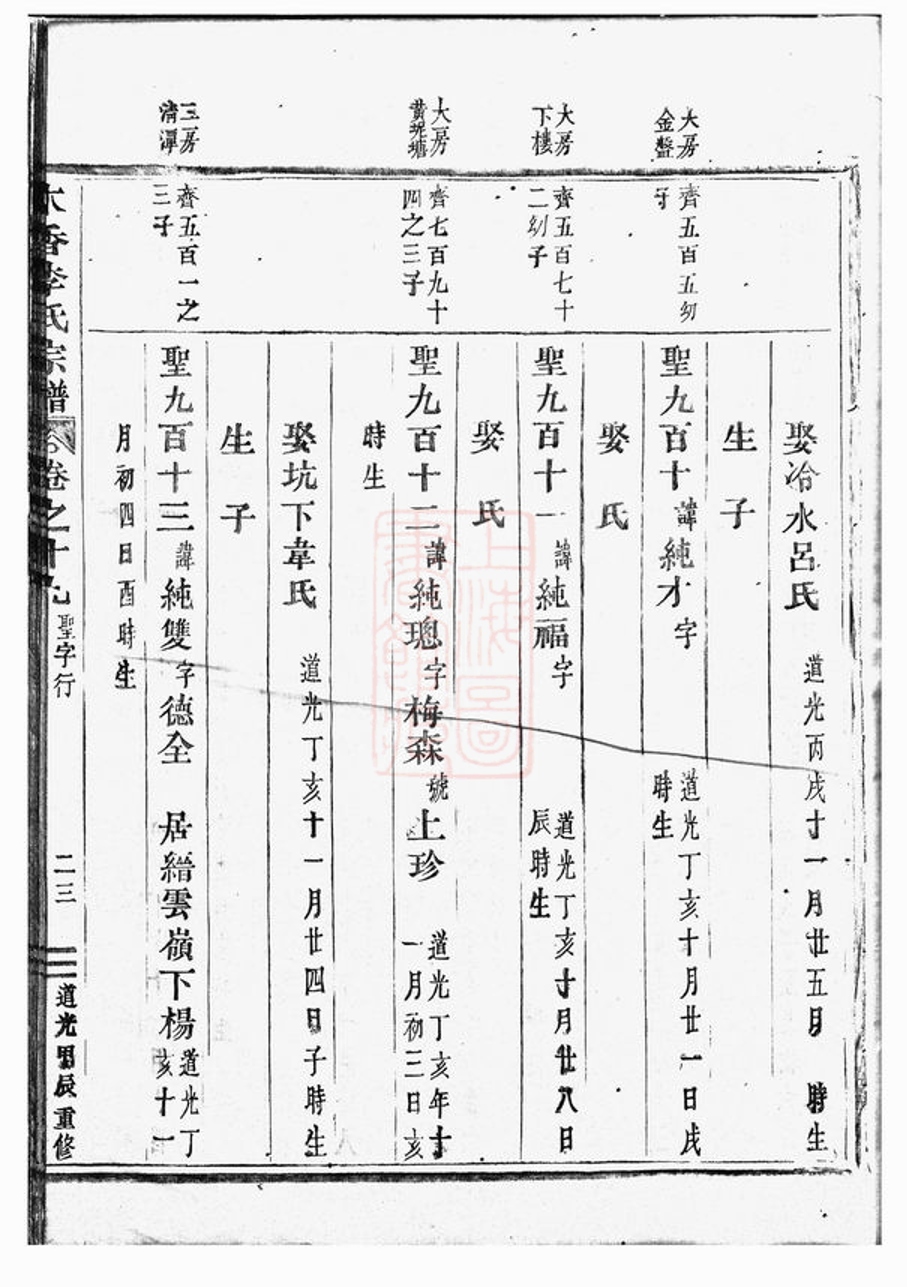 娶冷水呂氏 道光丙戌十一月廿五日 時生
生子
大房
金盤
齊五百五幼
子
聖九百十諱純才字
道光丁亥十月廿一日戌
時生
娶 氏
大房
下樓
齊五百七十
二幼子
聖九百十一諱純福字
道光丁亥十月廿八日
辰時生
娶 氏
大房
黃坭塘
齊七百九十
四之三子
聖九百十二諱純璁字梅森號上珍
道光丁亥年十
一月初三日亥
時生
娶坑下韋氏 道光丁亥十一月廿四日子時生
生子
三房
清潭
齊五百一之
三子
聖九百十三諱純雙字德全 居縉雲嶺下楊
道光丁
亥十一
月初四日酉時生
香李氏宗譜 卷之十九 聖字行 二三 道光甲辰重修
上海圖